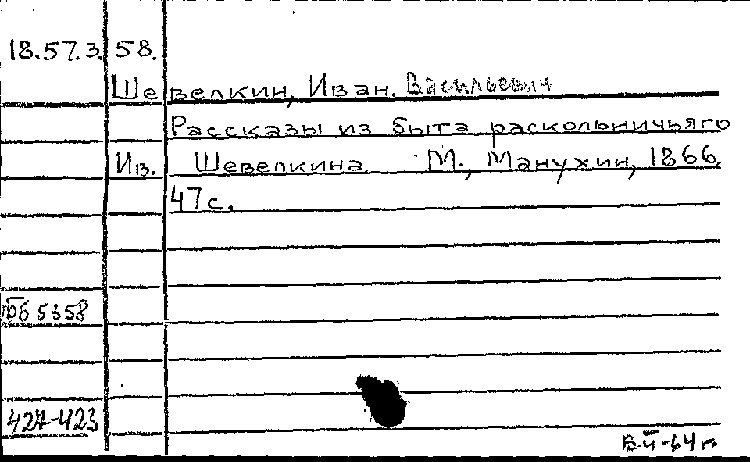 18.57.3.58.
Шевелкин, Иван. Васильевич
Рассказы из быта раскольничьяго
Ив. Шевелкина М., Манухин, 1866.
47с.
5358
427-423